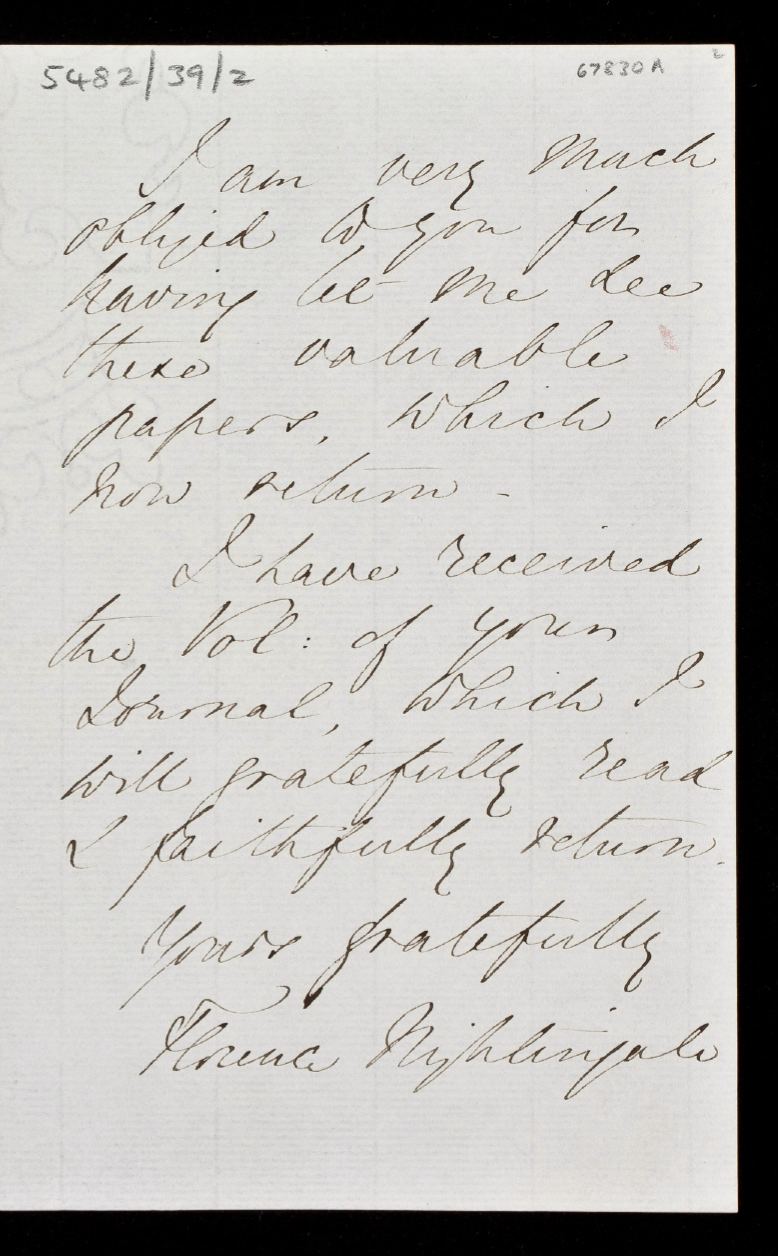 5482/39/2
67830A
2
I am very much
obliged to you for
having let me see
these valuable
papers, which I
now return -
I have received
the Vol: of your
Journal, which I
will gratefully read
& faithfully return.
Yours gratefully
Florence Nightingale